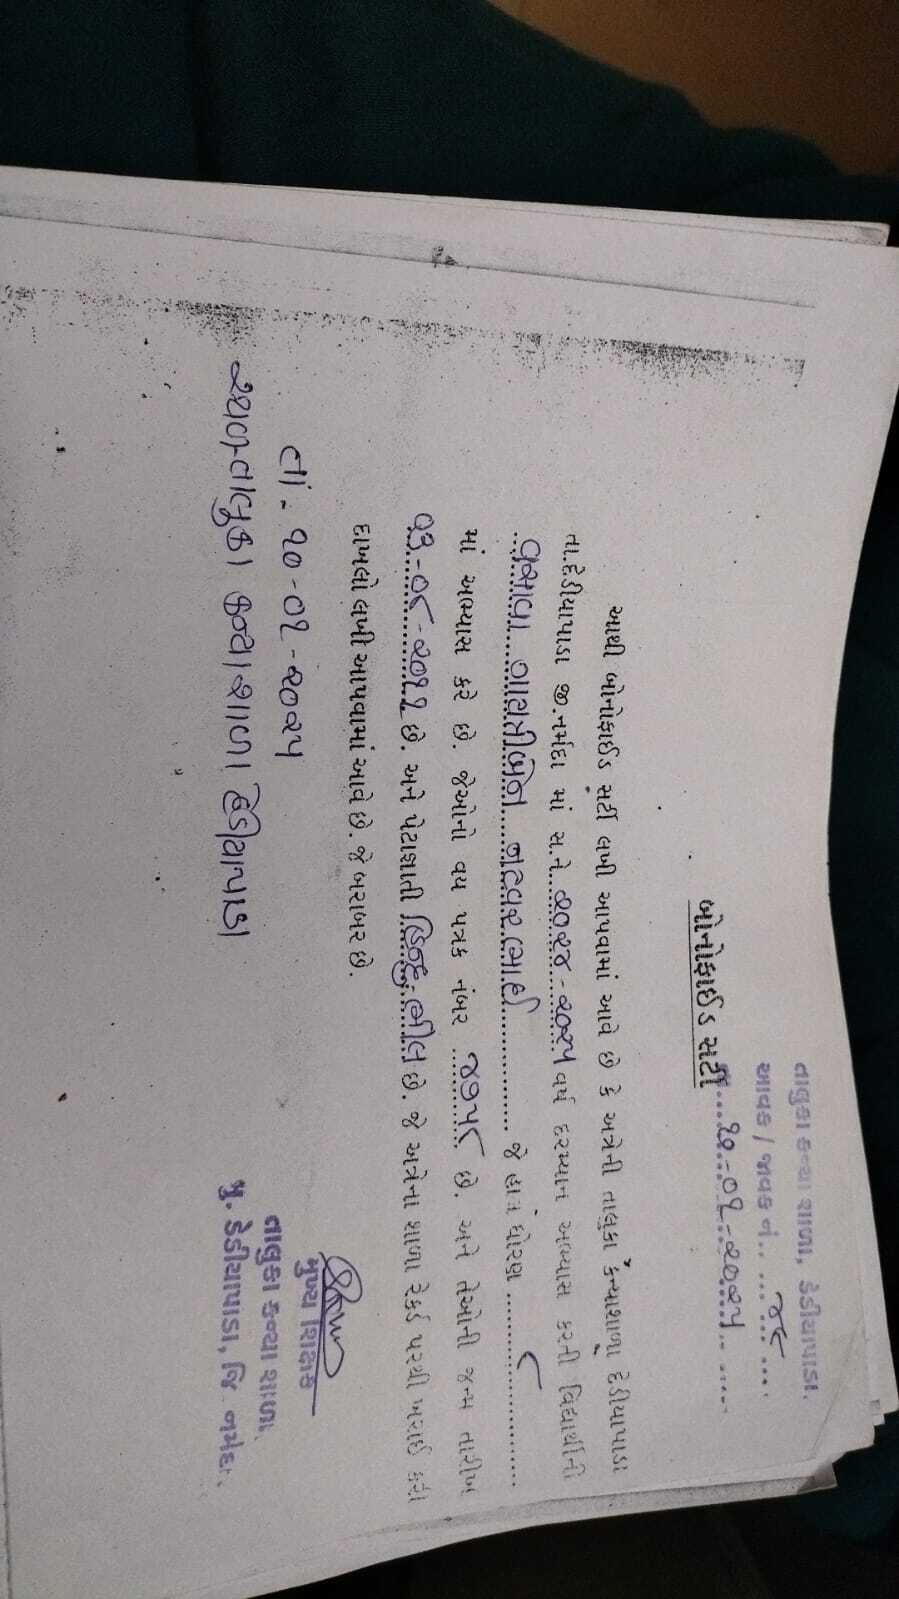 તાલુકા કન્યા શાળા, ડેડીયાપાડા.
આવક / જાવક નં.. ... ૪૮ ....
૧૦-૦૧-૨૦૨૫
બોનોફાઈડ સર્ટી
આથી બોનોફાઈડ સર્ટી લખી આપવામાં આવે છે કે અત્રેની તાલુકા કન્યાશાળા દેડીયાપાડા
તા.દેડીયાપાડા જી.નર્મદા માં સ.ને. ૨૦૨૪-૨૦૨૫ વર્ષ દરમ્યાન અભ્યાસ કરતી વિદ્યાર્થીની
વસાવા ગાયત્રીબેન નટવરભાઈ જે હાલ ધોરણ ૮
માં અભ્યાસ કરે છે. જેઓનો વય પત્રક નંબર ૪૭૫૮ છે. અને તેઓની જન્મ તારીખ
-૦૮-૨૦૧૧ છે. અને પેટાજાતી હિન્દુ ભીલ છે. જે અત્રેના શાળા રેકર્ડ પરથી ખરાઈ કરી
દાખલો લખી આપવામાં આવે છે. જે બરાબર છે.
તાં. ૧૦-૦૧-૨૦૨૫
સ્થળ-તાલુકા કન્યાશાળા ડેડીયાપાડા
મુખ્ય શિક્ષક
તાલુકા કન્યા શાળા
મુ. ડેડીયાપાડા, જિ. નર્મદા.